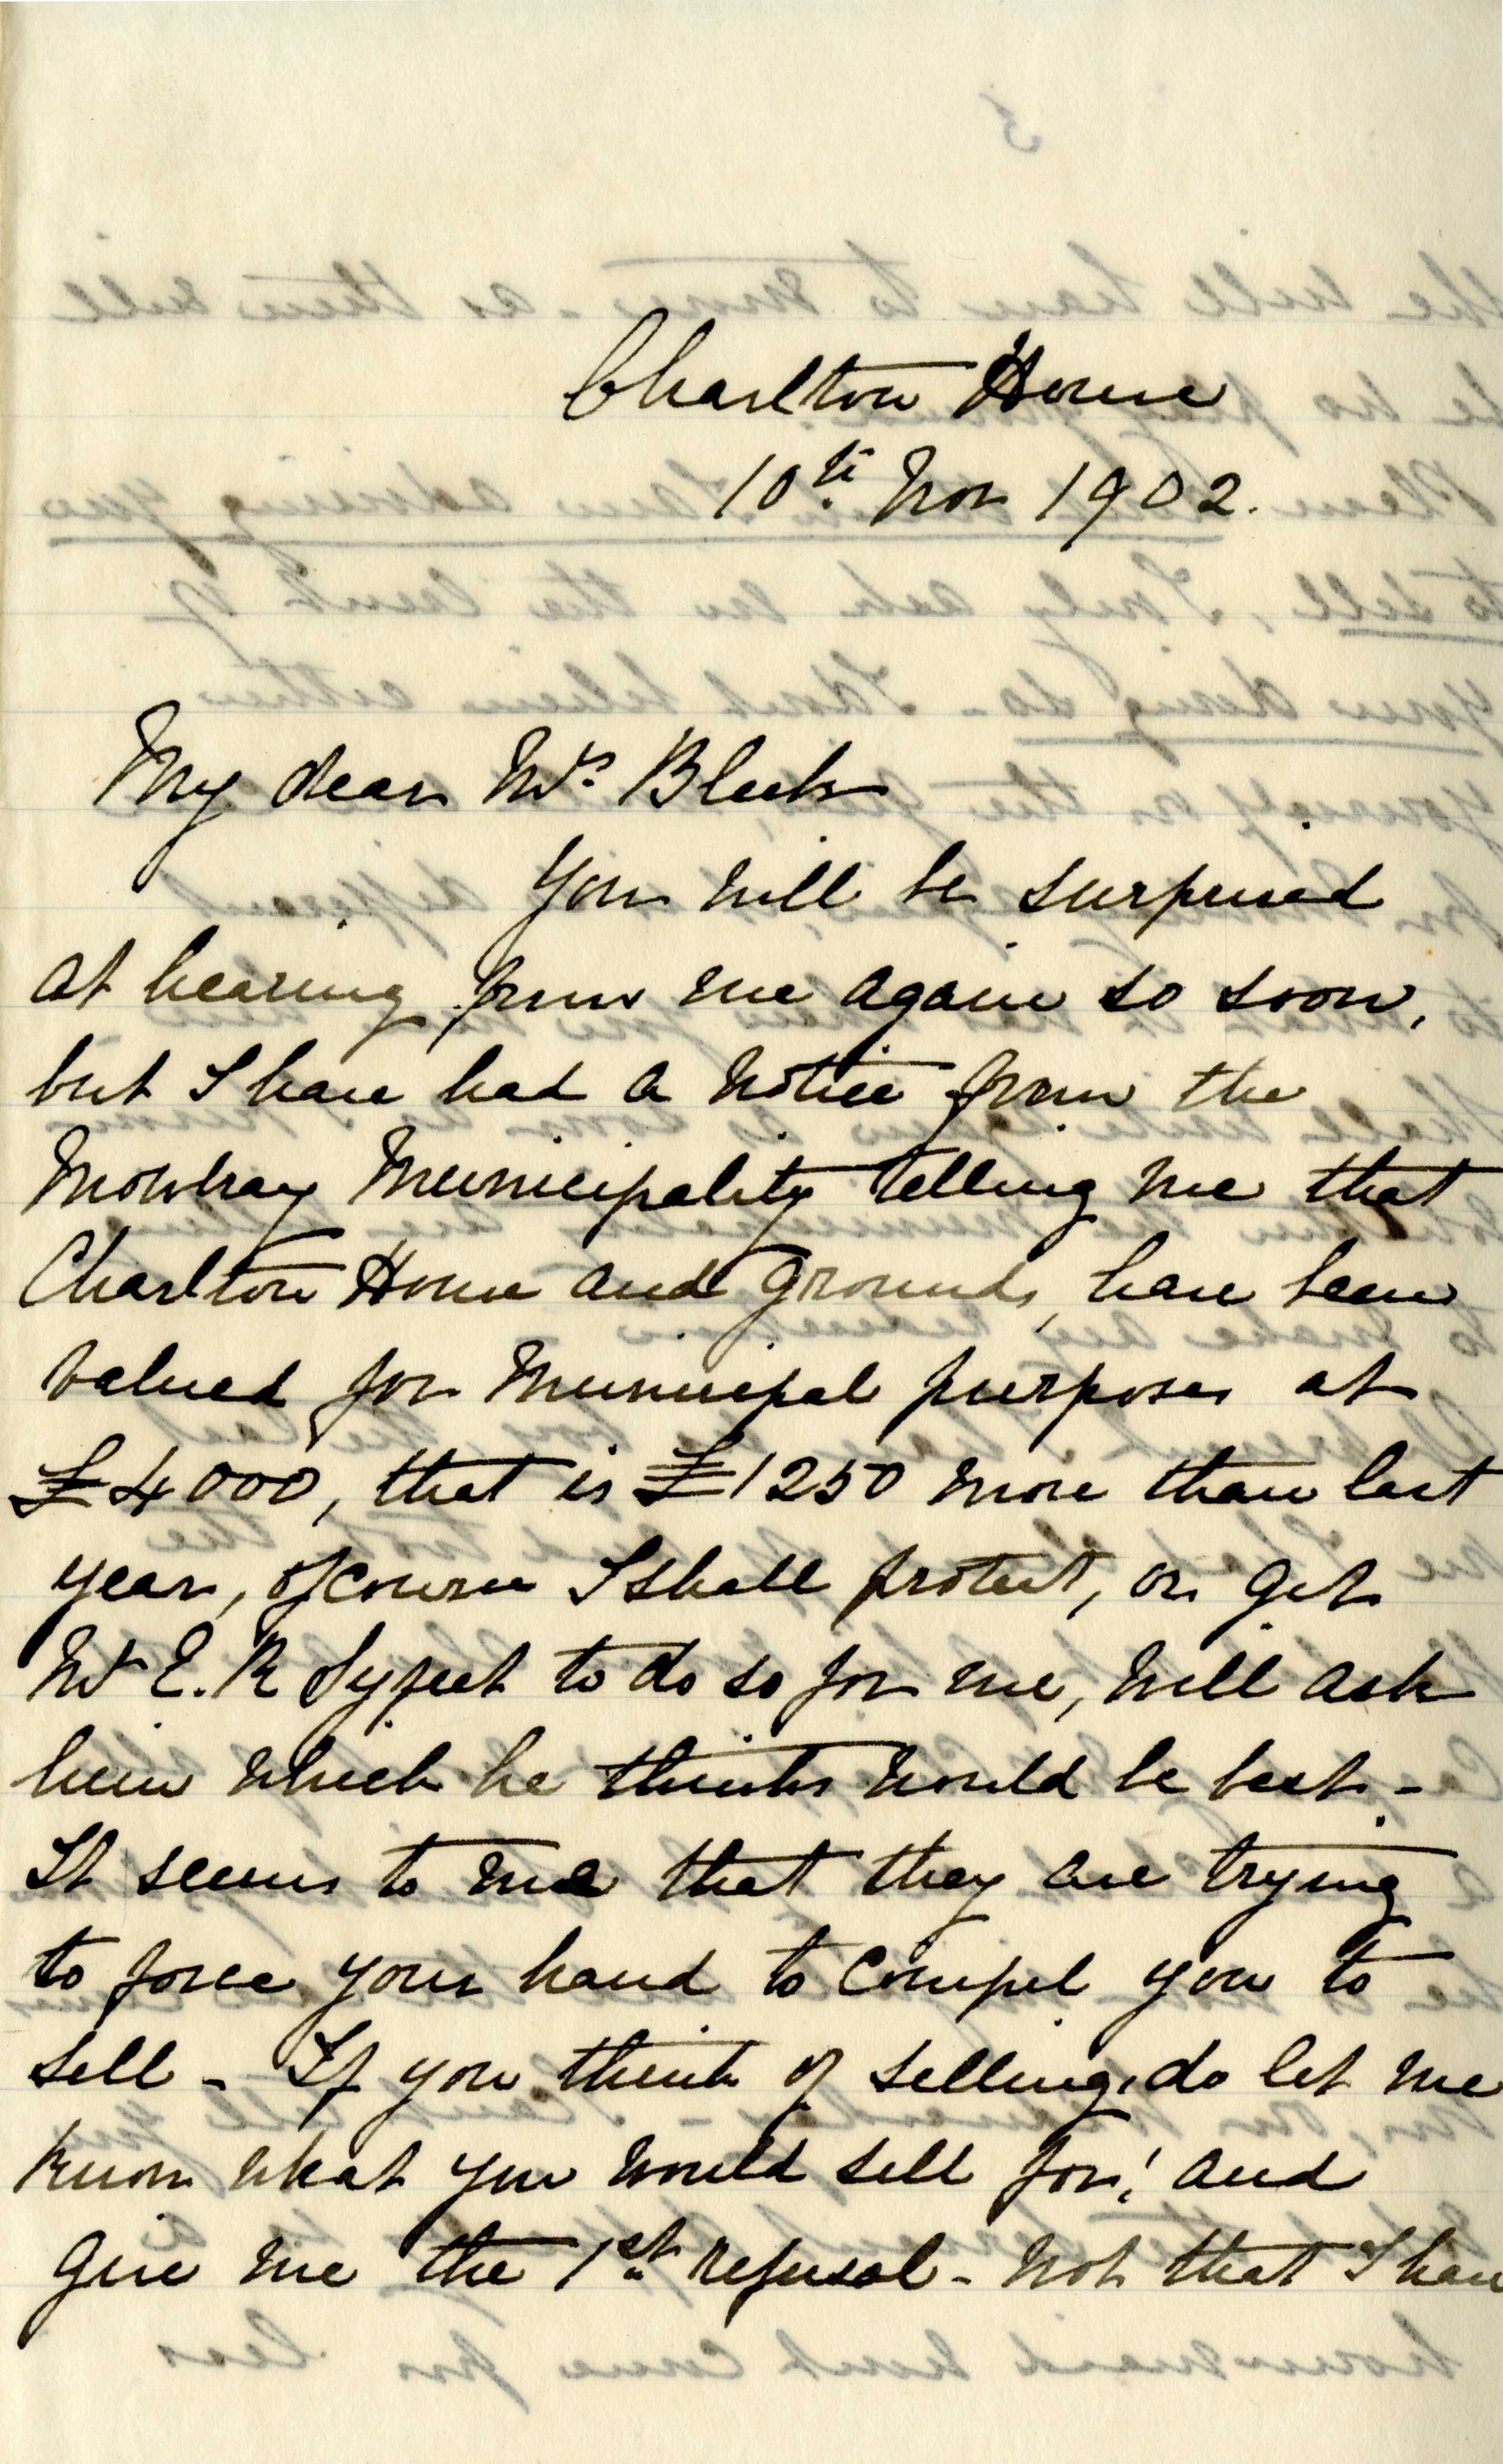 Charlton House
10th. Nov 1902.
My dear Mrs. Bleek
You will be surprised
at hearing from me again so soon,
but I have had a notice from the
Mowbray Municipality telling me that
Charlton House and grounds, have been
valued for Municipal purposes at
£4000, that is £1250 more than last
year, of course I shall protest, or get
Mr E. R Syfret to do so for me, will ask
him which he thinks would be best -
It seems to me that they are trying
to force your hand to compel you to
sell - If you think of selling, do let me
know what you would sell for! and
give me the 1st. refusal - not that I have